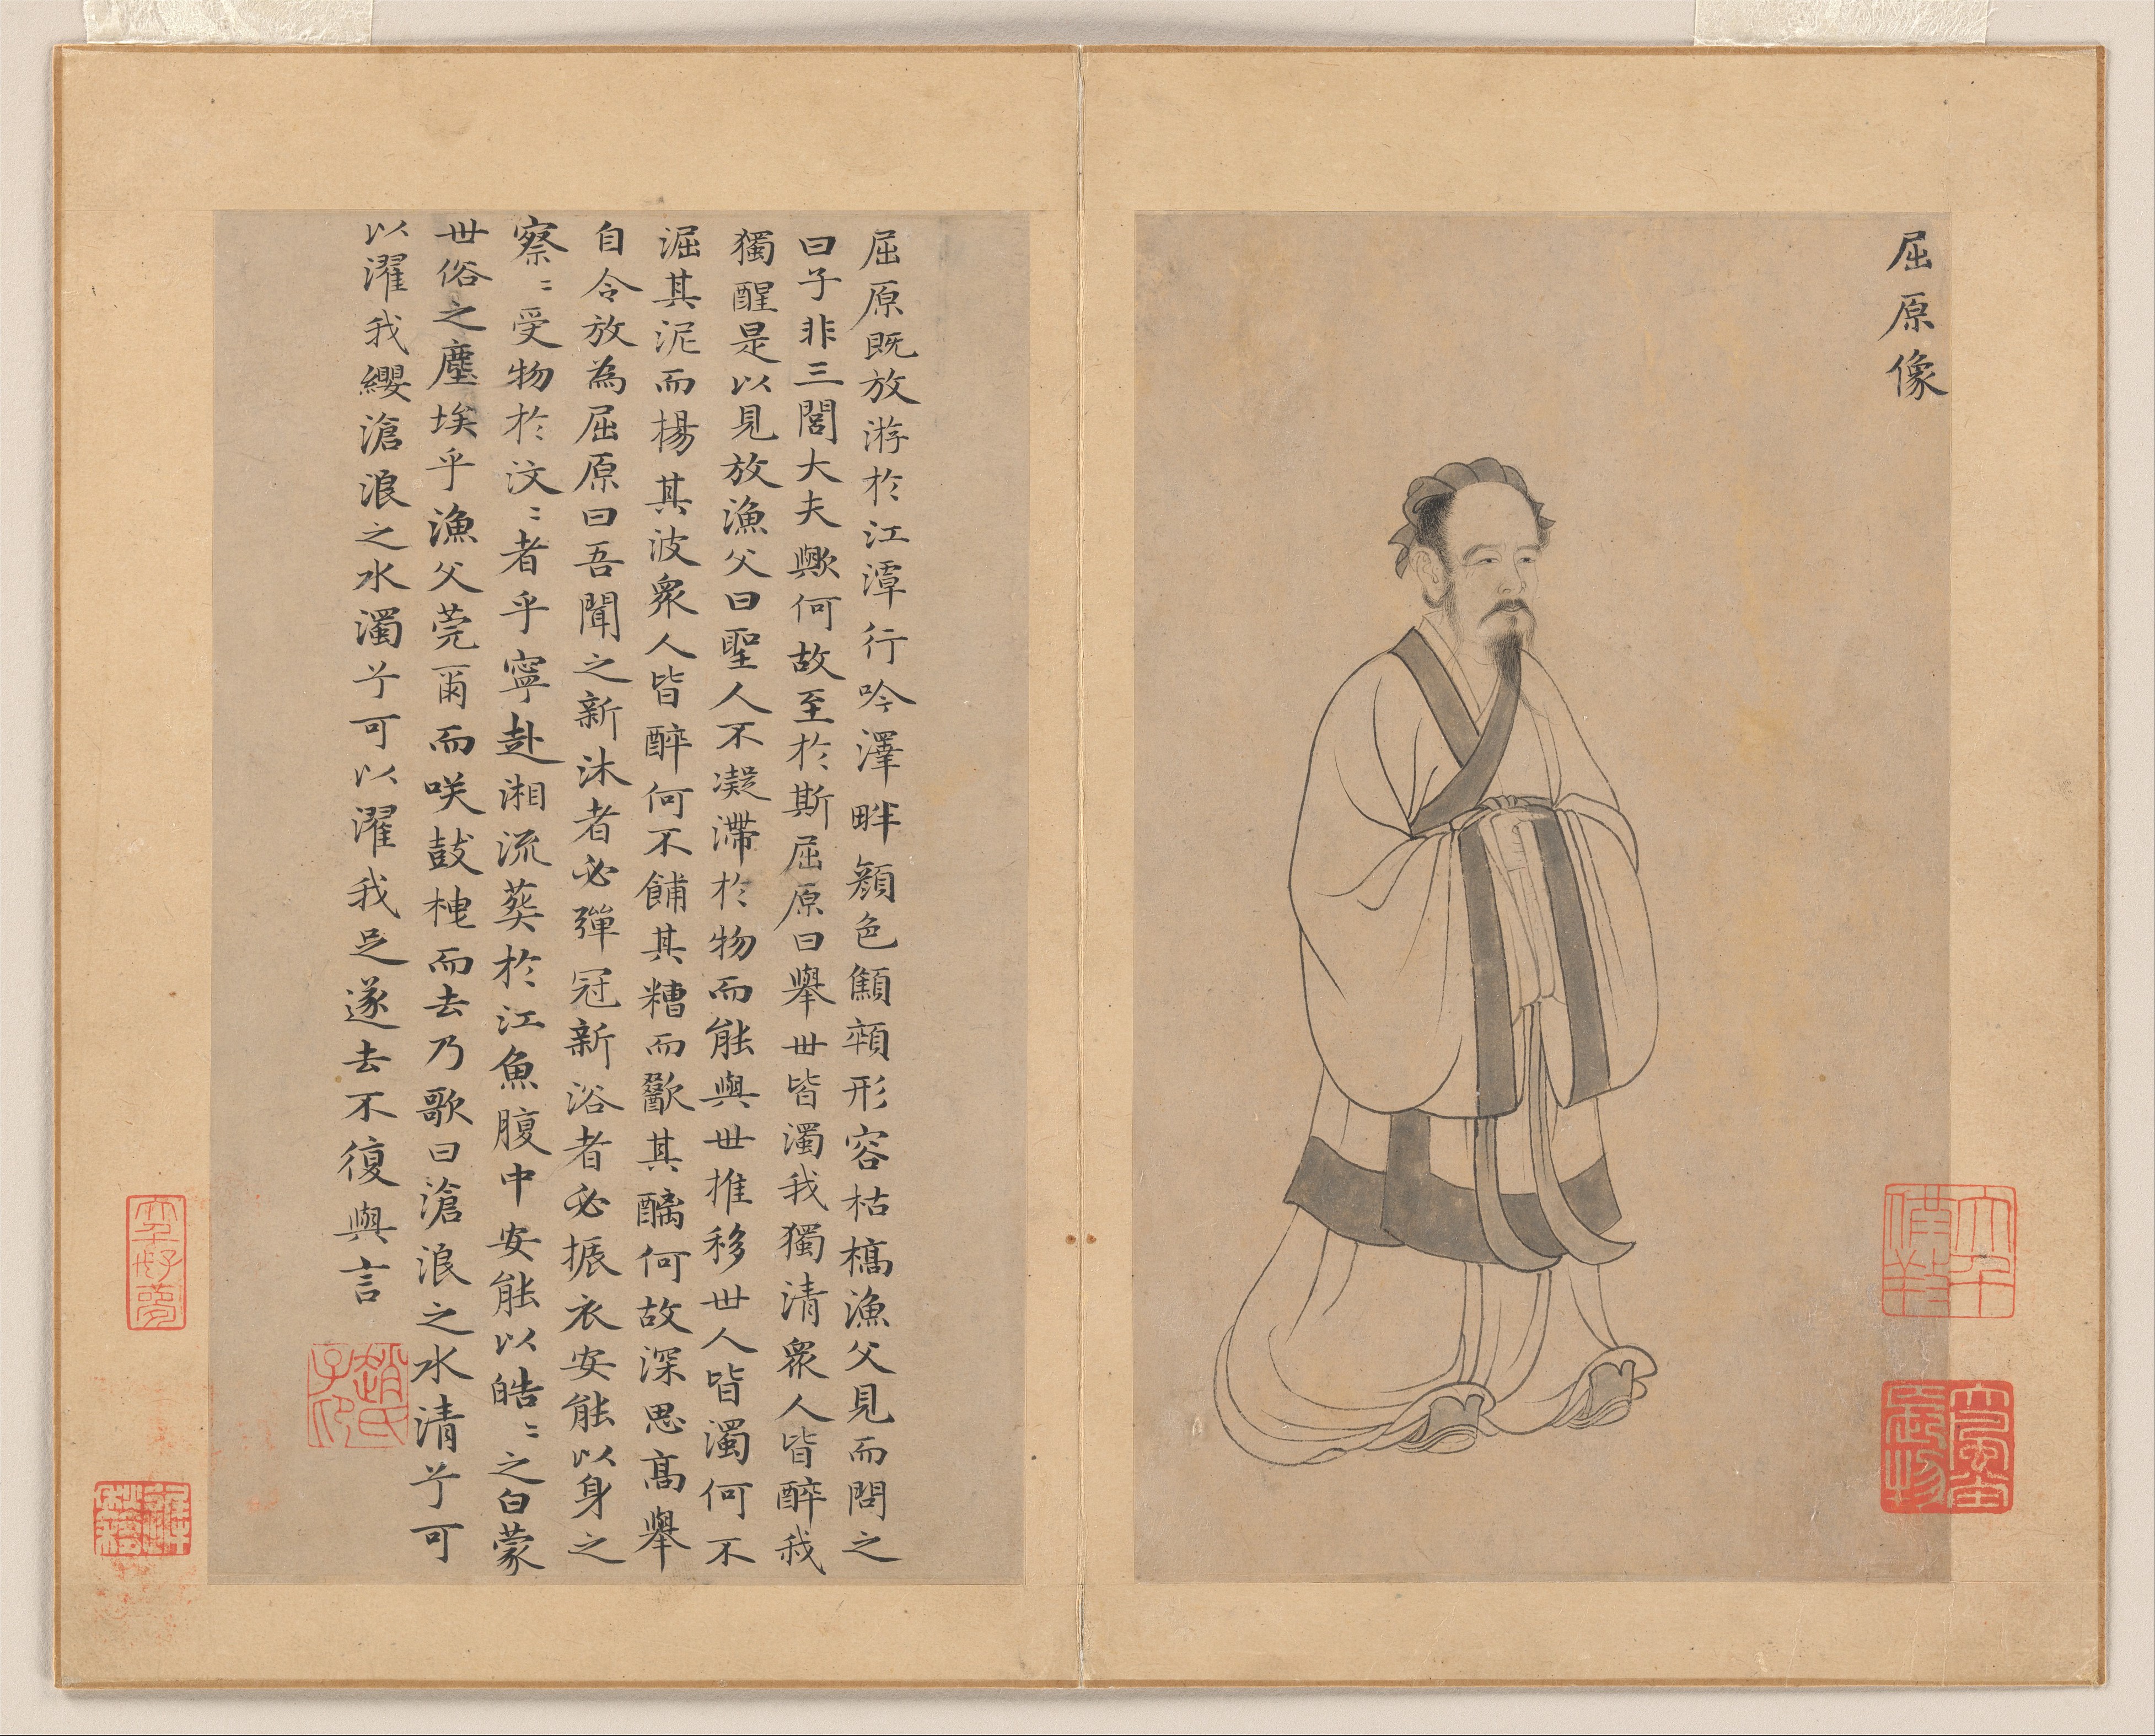 屈原像
屈原既放游於江潭行吟澤畔顔色顦顇形容枯槁漁父見而問之
曰子非三閭大夫歟何故至於斯屈原曰舉世皆濁我獨清衆人皆醉我
獨醒是以見放漁父曰聖人不凝滯於物而能與世推移世人皆濁何不
淈其泥而楊其波衆人皆醉何不餔其糟而歠其醨何故深思髙舉
自令放為屈原曰吾聞之新沐者必彈冠新浴者必振衣安能以身之
察〻受物於汶〻者乎寧赴湘流葬於江魚腹中安能以皓〻之白蒙
世俗之塵埃乎漁父莞爾而咲鼓枻而去乃歌曰滄浪之水清兮可
以濯我纓滄浪之水濁兮可以濯我足遂去不復與言
趙氏子印